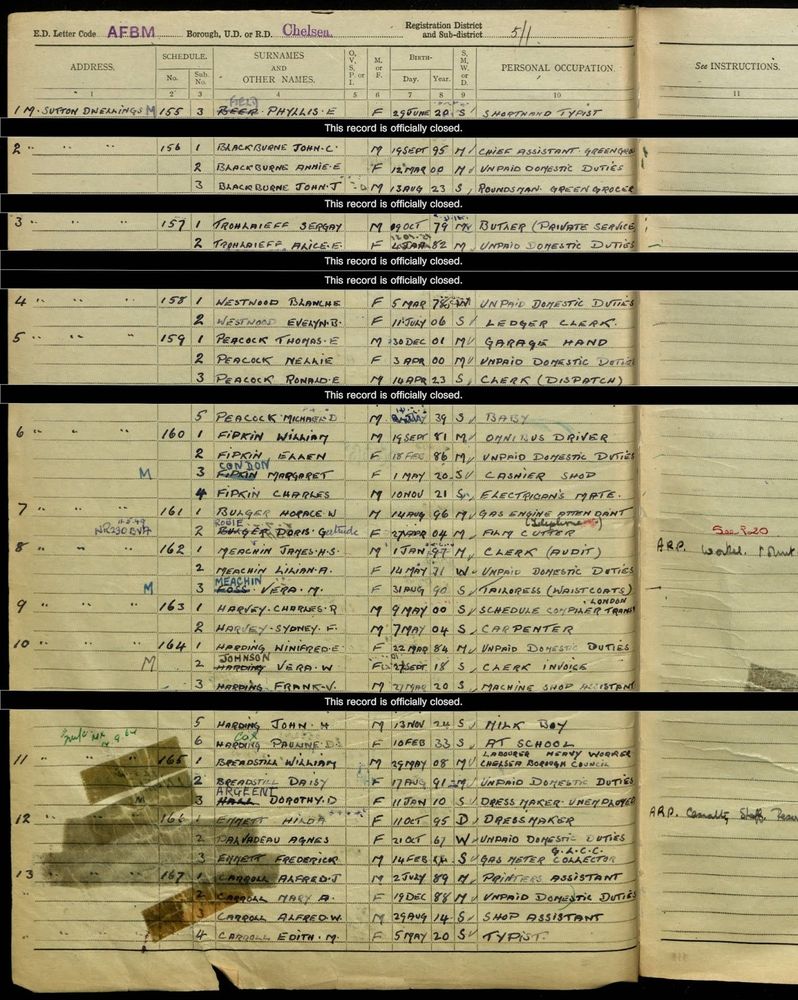 E.D. Letter Code AFBM Borough, U.D. or R.D. Chelsea. Registration District and Sub-district 5/1
ADDRESS. SCHEDULE. No. Sub. No. SURNAMES AND OTHER NAMES. O, V, S, P or I M. or F. BIRTH- Day. Year. S, M, W, or D. PERSONAL OCCUPATION. See INSTRUCTIONS.
1 2 3 4 5 6 7 8 9 10 11
FIELD
1 M. SUTTON DWELLINGS M 155 3 BEER PHYLLIS·E F 29 JUNE 20 S SHORTHAND TYPIST
This record is officially closed.
2 " " " 156 1 BLACKBURNE JOHN·C· M 19 SEPT 95 M CHIEF ASSISTANT GREENGRO
2 BLACKBURNE ANNIE·E F 12 MAR 00 M UNPAID DOMESTIC DUTIES
3 BLACKBURNE JOHN·J M 13 AUG 23 S ROUNDSMAN GREEN GROCER
This record is officially closed.
3 " " " 157 1 TROHLAIEFF SERGAY M 09 OCT 79 M BUTLER (PRIVATE SERVICE
2 TROHLAIEFF ALICE·E· F 82 M UNPAID DOMESTIC DUTIES
This record is officially closed.
This record is officially closed.
4 " " " 158 1 WESTWOOD BLANCHE F 5 MAR 78 W UNPAID DOMESTIC DUTIES
2 WESTWOOD EVELYN·B· F 11 JULY 06 S LEDGER CLERK.
5 " " " 159 1 PEACOCK THOMAS·E M 30 DEC 01 M GARAGE HAND
2 PEACOCK NELLIE F 3 APR 00 M UNPAID DOMESTIC DUTIES
3 PEACOCK RONALD·E M 14 APR 23 S CLERK (DISPATCH)
This record is officially closed.
5 PEACOCK MICHAEL D M 39 S BABY
6 " " " 160 1 FIPKIN WILLIAM M 19 SEPT 81 M OMNIBUS DRIVER
2 FIPKIN ELLEN F 18 FEB 86 M UNPAID DOMESTIC DUTIES
CONDON
M 3 FIPKIN MARGARET F 1 MAY 20 S CASHIER SHOP
4 FIPKIN CHARLES M 10 NOV 21 S ELECTRICIAN'S MATE.
7 " " " 161 1 BULGER HORACE W M 14 AUG 96 M GAS ENGINE ATTENDANT
NR230 2 BULGER DORIS· Gertrude F 27 APR 04 M FILM CUTTER See P20
8 " " " 162 1 MEACHIN JAMES·H·S· M 1 JAN 97 M CLERK (AUDIT) A.R.P.
2 MEACHIN LILIAN·A. F 14 MAY 71 W UNPAID DOMESTIC DUTIES
MEACHIN
M 3 FOSS· VERA·M. F 31 AUG 90 S TAILORESS (WAISTCOATS)
LONDON
9 " " " 163 1 HARVEY·CHARLES·R M 9 MAY 00 S SCHEDULE COMPILER TRANS
2 HARVEY·SYDNEY·F. M 7 MAY 04 S CARPENTER
10 " " " 164 1 HARDING WINIFRED·E F 22 MAR 84 M UNPAID DOMESTIC DUTIES
JOHNSON
M 2 HARDING VERA·W F 27 SEPT 18 S CLERK INVOICE
3 HARDING FRANK·V. M 21 MAR 20 S MACHINE SHOP ASSISTANT
This record is officially closed.
5 HARDING JOHN·H M 13 NOV 24 S MILK BOY
Cox
6 HARDING PAULINE·D F 10 FEB 33 S AT SCHOOL
LABOURER HEAVY WORKER
11 " " " 165 1 BREADSTILL WILLIAM M 29 MAY 08 M CHELSEA BOROUGH COUNCIL
2 BREADSTILL DAISY F 17 AUG 91 M UNPAID DOMESTIC DUTIES
ARGEENT
M 3 HALL DOROTHY·D F 11 JAN 10 S DRESS MAKER· UNEMPLOYED
12 " " " 166 1 EMMETT HILDA F 11 OCT 95 D DRESSMAKER A.R.P. Casualty Staff
2 PALVADEAU AGNES F 21 OCT 67 W UNPAID DOMESTIC DUTIES
G.L.C.C.
3 EMMETT FREDERICK M 14 FEB S GAS METER COLLECTOR
13 " " " 167 1 CARROLL ALFRED·J M 2 JULY 89 M PRINTERS ASSISTANT
2 CARROLL MARY A. F 19 DEC 88 M UNPAID DOMESTIC DUTIES
3 CARROLL ALFRED·W. M 29 AUG 14 S SHOP ASSISTANT
4 CARROLL EDITH·M. F 5 MAY 20 S TYPIST.